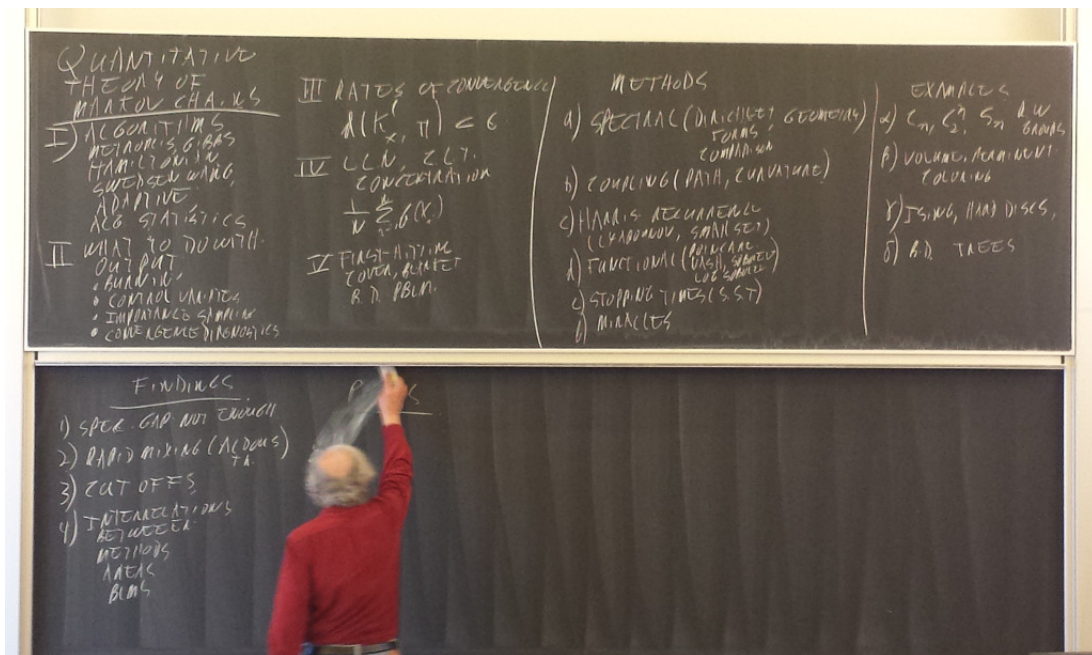 QUANTITATIVE
THEORY OF
MARKOV CHAINS
I) ALGORITHMS
METROPOLIS, GIBBS
HAMILTONIAN
SWEDSEN WANG,
ADAPTIVE
ALG STATISTICS
II WHAT TO DO WITH
OUTPUT
• BURNIN,
• CONTROL VARIATES
• IMPORTANCE SAMPLING
• CONVERGENCE DIAGNOSTICS
III RATES OF CONVERGENCE
IV LLN, CLT.
CONCENTRATION
V FIRST-HITTING
COVER, BLANKET
B.D. PBLM.
METHODS
a) SPECTRAL (DIRICHLET GEOMETRIC)
FORMS,
COMPARISON
b) COUPLING (PATH, CURVATURE)
c) HARRIS RECURRENCE
(LYAPUNOV, SMALL SET)
d) FUNCTIONAL (POINCARE
NASH, SOBOLEV
LOG SOBOLEV)
e) STOPPING TIMES (S.S.T)
f) MIRACLES
EXAMPLES
α) Cₙ, C₂ⁿ, Sₙ R.W
GROUPS
β) VOLUME, PERMANENT.
COLORING
γ) ISING, HARD DISCS,
δ) B.D. TREES
FINDINGS
1) SPEC. GAP NOT ENOUGH
2) RAPID MIXING (ALDOUS)
3) CUT OFFS
4) INTERRELATIONS
BETWEEN
METHODS
AREAS